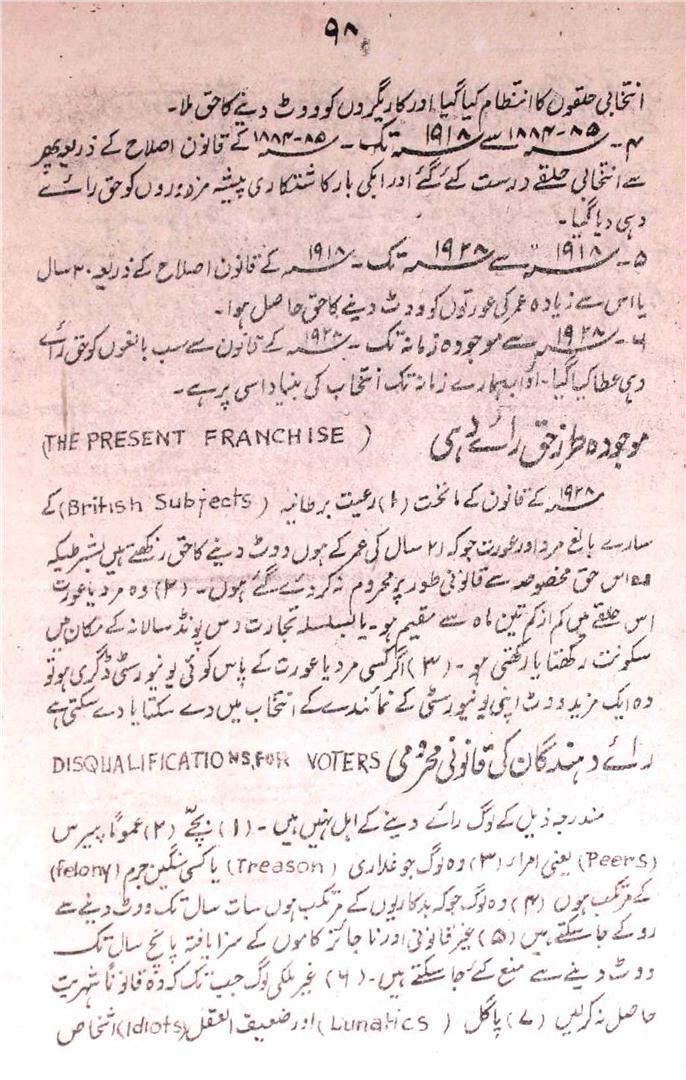 ۹۸
انتخابی حلقوں کا انتظام کیا گیا اور کاریگروں کو ووٹ دینے کا حق ملا۔
۴۔ ۸۵-۱۸۸۴ء سے ۱۹۱۸ء تک۔ ۸۵-۱۸۸۴ء کے قانون اصلاح کے ذریعہ پھر
سے انتخابی حلقے درست کئے گئے اور ابکی بار کاشتکاری پیشہ مزدوروں کو حق رائے
دہی دیا گیا۔
۵۔ ۱۹۱۸ء سے ۱۹۲۸ء تک۔ ۱۹۱۸ء کے قانون اصلاح کے ذریعہ ۳۰ سال
یا اس سے زیادہ عمر کی عورتوں کو ووٹ دینے کا حق حاصل ہوا۔
۶۔ ۱۹۲۸ء سے موجودہ زمانہ تک۔ ۱۹۲۸ء کے قانون سے سب بالغوں کو حق رائے
دہی عطا کیا گیا۔ اور اب ہمارے زمانہ تک انتخاب کی بنیاد اسی پر ہے۔
موجودہ طرز حق رائے دہی (THE PRESENT FRANCHISE)
۱۹۲۸ء کے قانون کے ماتحت (۱) رعیت برطانیہ (British Subjects) کے
سارے بالغ مرد اور عورت جو کہ ۲۱ سال کی عمر کے ہوں ووٹ دینے کا حق رکھتے ہیں بشرطیکہ
وہ اس حق مخصوصہ سے قانونی طور پر محروم نہ کر دئے گئے ہوں۔ (۲) وہ مرد یا عورت
اس حلقے میں کم از کم تین ماہ سے مقیم ہو۔ یا بسلسلہ تجارت دس پونڈ سالانہ کے مکان میں
سکونت رکھتا یا رکھتی ہو۔ (۳) اگر کسی مرد یا عورت کے پاس کوئی یونیورسٹی ڈگری ہو تو
وہ ایک مزید ووٹ اپنی یونیورسٹی کے نمائندے کے انتخاب میں دے سکتا یا دے سکتی ہے
رائے دہندگان کی قانونی محرومی DISQUALIFICATIONS, FOR VOTERS
مندرجہ ذیل کے لوگ رائے دینے کے اہل نہیں ہیں۔ (۱) بچّے (۲) عموماً پیرس
(Peers) یعنی امراء (۳) وہ لوگ جو غداری (Treason) یا کسی سنگین جرم (felony)
کے مرتکب ہوں (۴) وہ لوگ جو کہ بدکاریوں کے مرتکب ہوں سات سال تک ووٹ دینے سے
روکے جا سکتے ہیں (۵) غیر قانونی اور ناجائز کاموں کے سزا یافتہ پانچ سال تک
ووٹ دینے سے منع کئے جا سکتے ہیں۔ (۶) غیر ملکی لوگ جب تک کہ وہ قانوناً شہریت
حاصل نہ کر لیں (۷) پاگل (Lunatics) اور ضعیف العقل (Idiots) اشخاص